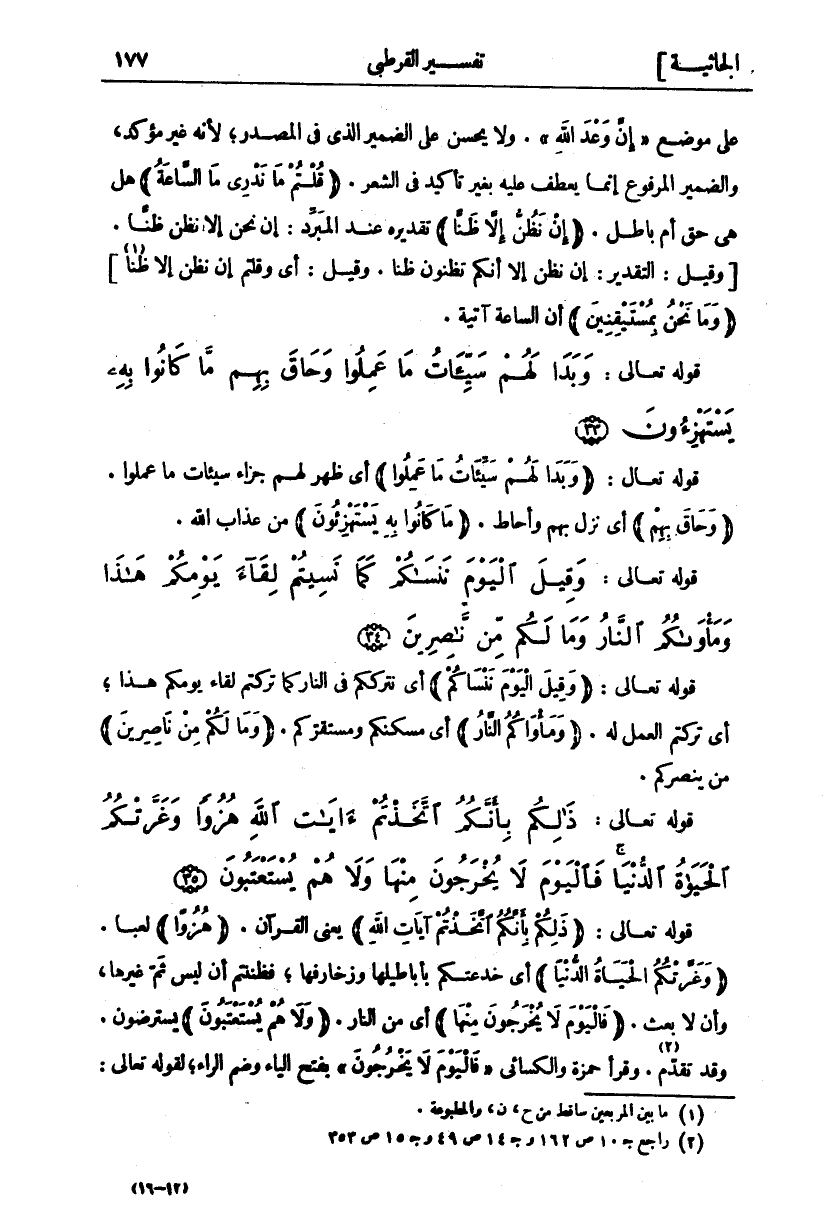 الجاثيـــة ] تفســـير القرطبى ١٧٧
على موضـع « إِنَّ وَعْدَ اللهِ » . ولا يحسن على الضمير الذى فى المصـدر؛ لأنه غير مؤكد،
والضمير المرفوع إنمـا يعطف عليه بغير تأكيد فى الشعر . ﴿ قُلْتُمْ مَا نَدْرِى مَا السَّاعَةُ ﴾ هل
هى حق أم باطـل . ﴿ إِنْ نَظُنُّ إِلَّا ظَنًّا ﴾ تقديره عنـد المُبَرِّد : إن نحن إلا نظن ظنًّـا .
[ وقيـل : التقدير : إن نظن إلا أنكم تظنون ظنا . وقيـل : أى وقلتم إن نظن إلا ظنا (١) ]
﴿ وَمَا نَحْنُ بِمُسْتَيْقِنِينَ ﴾ أن الساعة آتية .
قوله تعـالى : وَبَدَا لَهُـمْ سَيِّئَاتُ مَا عَمِلُوا وَحَاقَ بِهِـم مَّا كَانُوا بِهِۦ
يَسْتَهْزِءُونَ ﴿٣٣﴾
قوله تعـال : ﴿ وَبَدَا لَهُـمْ سَيِّئَاتُ مَا عَمِلُوا ﴾ أى ظهر لهـم جزاء سيئات ما عملوا .
﴿ وَحَاقَ بِهِمْ ﴾ أى نزل بهم وأحاط . ﴿ مَا كَانُوا بِهِ يَسْتَهْزِئُونَ ﴾ من عذاب الله .
قوله تعـالى : وَقِيـلَ ٱلْيَوْمَ نَنسَىٰكُمْ كَمَا نَسِيتُمْ لِقَآءَ يَوْمِكُمْ هَـٰذَا
وَمَأْوَىٰكُمُ ٱلنَّارُ وَمَا لَـكُم مِّن نَّـٰصِرِينَ ﴿٣٤﴾
قوله تعـالى : ﴿ وَقِيلَ الْيَوْمَ نَنْسَاكُمْ ﴾ أى نترككم فى النار كما تركتم لقاء يومكم هـذا ؛
أى تركتم العمل له . ﴿ وَمَأْوَاكُمُ النَّارُ ﴾ أى مسكنكم ومستقرّكم . ﴿ وَمَا لَكُمْ مِنْ نَاصِرِينَ ﴾
من ينصركم .
قوله تعـالى : ذَٰلِكُم بِأَنَّكُمُ ٱتَّخَذْتُمْ ءَايَـٰتِ ٱللَّهِ هُزُوًا وَغَرَّتْـكُمُ
ٱلْحَيَوٰةُ ٱلدُّنْيَا ۚ فَٱلْيَوْمَ لَا يُخْرَجُونَ مِنْهَا وَلَا هُمْ يُسْتَعْتَبُونَ ﴿٣٥﴾
قوله تعـالى : ﴿ ذَلِكُمْ بِأَنَّكُمُ ٱتَّخَـذْتُمْ آيَاتِ اللهِ ﴾ يعنى القـرآن . ﴿ هُزُوًا ﴾ لعبـا .
﴿ وَغَرَّتْكُمُ الْحَيَـاةُ الدُّنْيَا ﴾ أى خدعتـكم بأباطيلها وزخارفها ؛ فظننتم أن ليس ثَمَّ غيرها،
وأن لا بعث . ﴿ فَالْيَوْمَ لَا يُخْرَجُونَ مِنْهَا ﴾ أى من النار . ﴿ وَلَا هُمْ يُسْتَعْتَبُونَ ﴾ يسترضون .
وقد تقدّم (٢) . وقرأ حمزة والكسائى « فَالْيَوْمَ لَا يَخْرُجُونَ » بفتح الياء وضم الراء؛ لقوله تعالى :
(١) ما بين المربعين ساقط من ح ، ن، والمطبوعة .
(٢) راجع جـ ١٠ ص ١٦٢ وجـ ١٤ ص ٤٩ وجـ ١٥ ص ٣٥٣
(١٢–١٦)